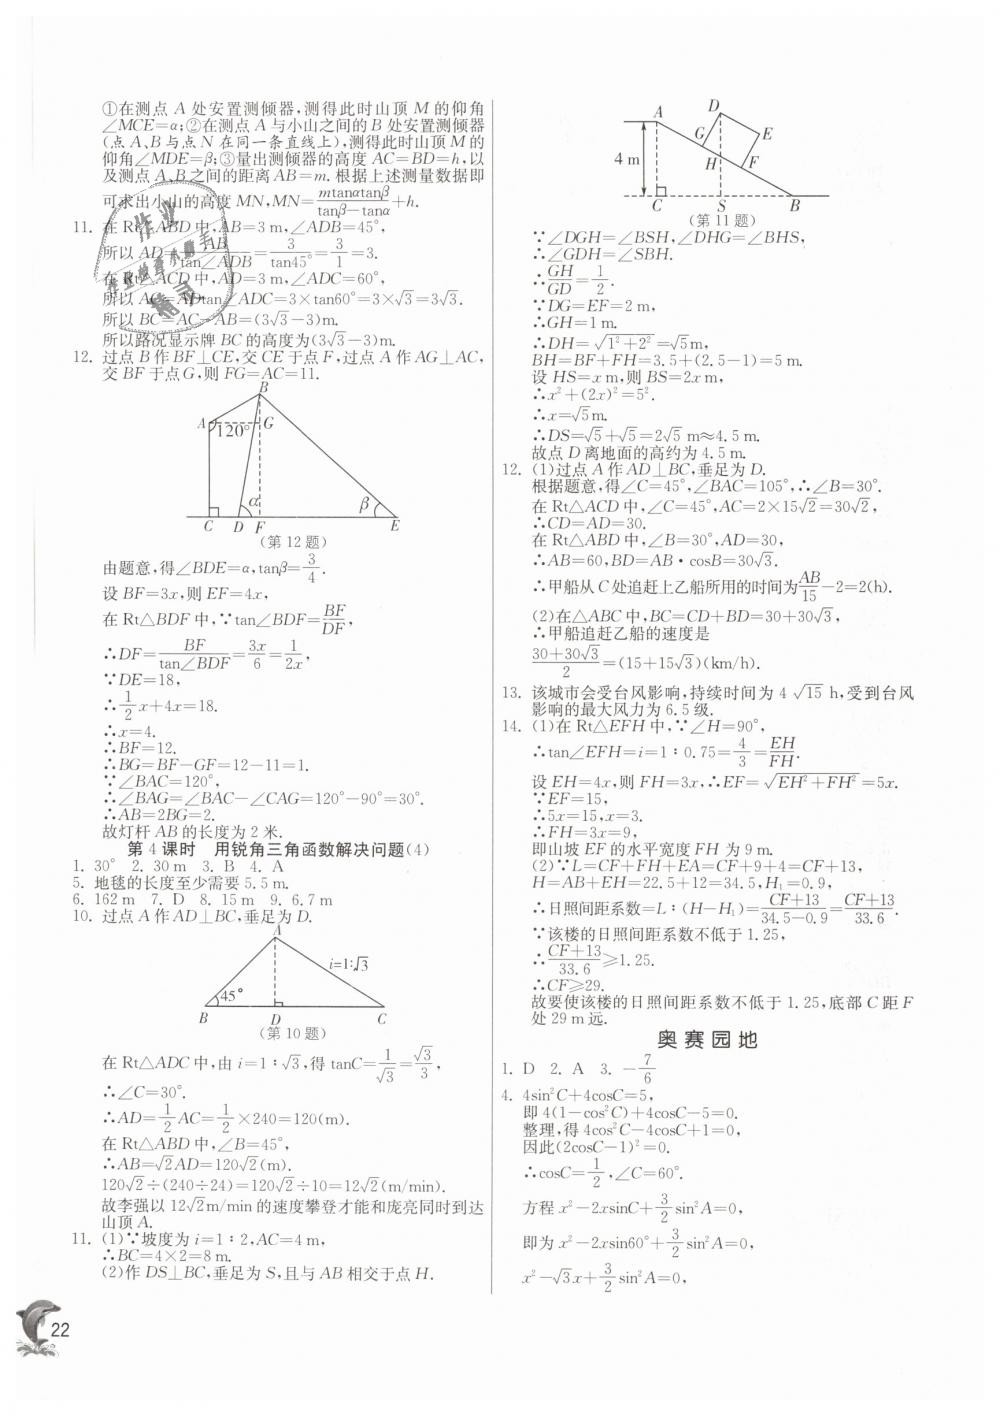 ①在测点 A 处安置测倾器,测得此时山顶 M 的仰角
∠MCE=α;②在测点 A 与小山之间的 B 处安置测倾器
(点 A、B 与点 N 在同一条直线上),测得此时山顶 M 的
仰角∠MDE=β;③量出测倾器的高度 AC=BD=h,以
及测点 A、B 之间的距离 AB=m. 根据上述测量数据即
可求出小山的高度 MN,MN=mtanαtanβ/(tanβ−tanα)+h.
11. 在 Rt△ABD 中,AB=3 m,∠ADB=45°,
所以 AD=AB/tan∠ADB=3/tan45°=3/1=3.
在 Rt△ACD 中,AD=3 m,∠ADC=60°,
所以 AC=ADtan∠ADC=3×tan60°=3×√3=3√3.
所以 BC=AC−AB=(3√3−3)m.
所以路况显示牌 BC 的高度为(3√3−3)m.
12. 过点 B 作 BF⊥CE,交 CE 于点 F,过点 A 作 AG⊥AC,
交 BF 于点 G,则 FG=AC=11.
B
A
G
120°
α
β
C D F E
(第 12 题)
由题意,得∠BDE=α,tanβ=3/4.
设 BF=3x,则 EF=4x,
在 Rt△BDF 中,∵tan∠BDF=BF/DF,
∴DF=BF/tan∠BDF=3x/6=1/2x,
∵DE=18,
∴1/2x+4x=18.
∴x=4.
∴BF=12.
∴BG=BF−GF=12−11=1.
∵∠BAC=120°,
∴∠BAG=∠BAC−∠CAG=120°−90°=30°.
∴AB=2BG=2.
故灯杆 AB 的长度为 2 米.
第 4 课时 用锐角三角函数解决问题(4)
1. 30° 2. 30 m 3. B 4. A
5. 地毯的长度至少需要 5.5 m.
6. 162 m 7. D 8. 15 m 9. 6.7 m
10. 过点 A 作 AD⊥BC,垂足为 D.
A
i=1:√3
45°
B D C
(第 10 题)
在 Rt△ADC 中,由 i=1:√3,得 tanC=1/√3=√3/3,
∴∠C=30°.
∴AD=1/2AC=1/2×240=120(m).
在 Rt△ABD 中,∠B=45°,
∴AB=√2AD=120√2(m).
120√2÷(240÷24)=120√2÷10=12√2(m/min).
故李强以 12√2 m/min 的速度攀登才能和庞亮同时到达
山顶 A.
11. (1)∵坡度为 i=1:2,AC=4 m,
∴BC=4×2=8 m.
(2)作 DS⊥BC,垂足为 S,且与 AB 相交于点 H.
22
D
A
G
E
H
F
4 m
C S B
(第 11 题)
∵∠DGH=∠BSH,∠DHG=∠BHS,
∴∠GDH=∠SBH.
∴GH/GD=1/2.
∵DG=EF=2 m,
∴GH=1 m.
∴DH=√(1²+2²)=√5 m,
BH=BF+FH=3.5+(2.5−1)=5 m.
设 HS=x m,则 BS=2x m,
∴x²+(2x)²=5².
∴x=√5 m.
∴DS=√5+√5=2√5 m≈4.5 m.
故点 D 离地面的高约为 4.5 m.
12. (1)过点 A 作 AD⊥BC,垂足为 D.
根据题意,得∠C=45°,∠BAC=105°,∴∠B=30°.
在 Rt△ACD 中,∠C=45°,AC=2×15√2=30√2,
∴CD=AD=30.
在 Rt△ABD 中,∠B=30°,AD=30,
∴AB=60,BD=AB·cosB=30√3.
∴甲船从 C 处追赶上乙船所用的时间为AB/15−2=2(h).
(2)在△ABC 中,BC=CD+BD=30+30√3,
∴甲船追赶乙船的速度是
(30+30√3)/2=(15+15√3)(km/h).
13. 该城市会受台风影响,持续时间为 4√15 h,受到台风
影响的最大风力为 6.5 级.
14. (1)在 Rt△EFH 中,∵∠H=90°,
∴tan∠EFH=i=1:0.75=4/3=EH/FH.
设 EH=4x,则 FH=3x,∴EF=√(EH²+FH²)=5x.
∵EF=15,
∴5x=15,x=3.
∴FH=3x=9,
即山坡 EF 的水平宽度 FH 为 9 m.
(2)∵L=CF+FH+EA=CF+9+4=CF+13,
H=AB+EH=22.5+12=34.5,H₁=0.9,
∴日照间距系数=L:(H−H₁)=(CF+13)/(34.5−0.9)=(CF+13)/33.6.
∵该楼的日照间距系数不低于 1.25,
∴(CF+13)/33.6≥1.25.
∴CF≥29.
故要使该楼的日照间距系数不低于 1.25,底部 C 距 F
处 29 m 远.
奥赛园地
1. D 2. A 3. −7/6
4. 4sin²C+4cosC=5,
即 4(1−cos²C)+4cosC−5=0.
整理,得 4cos²C−4cosC+1=0,
因此(2cosC−1)²=0.
∴cosC=1/2,∠C=60°.
方程 x²−2xsinC+3/2sin²A=0,
即为 x²−2xsin60°+3/2sin²A=0,
x²−√3x+3/2sin²A=0,